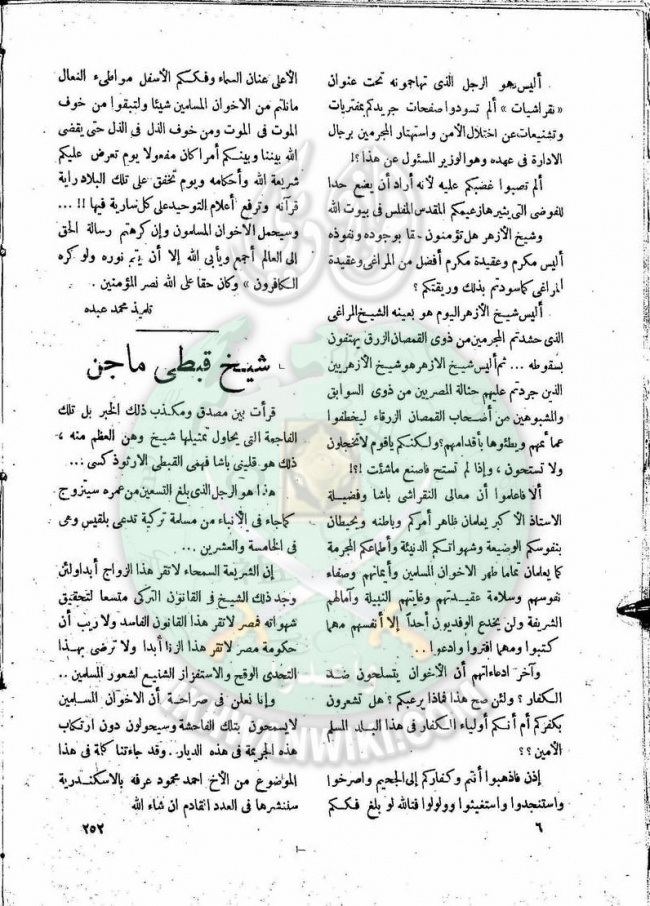 أليس هو الرجل الذى تهاجمونه تحت عنوان
« نقراشيات » ألم تسودوا صفحات جريدتكم بمفتريات
وتشنيعات عن اختلال الأمن واستهتار المجرمين برجال
الادارة فى عهده وهو الوزير المسئول عن هذا ؟!
ألم تصبوا غضبكم عليه لأنه أراد أن يضع حدا
للفوضى التى يثيرها زعيمكم المقدس المفلس فى بيوت الله
وشيخ الأزهر هل تؤمنون حقا بوجوده ونفوذه
أليس مكرم وعقيدة مكرم أفضل من المراغى وعقيدة
المراغى كما سودتم بذلك وريقتكم ؟
أليس شيخ الأزهر اليوم هو بعينه الشيخ المراغى
الذى حشدتم المجرمين من ذوى القمصان الزرق يهتفون
بسقوطه ... ثم أليس شيخ الازهر هو شيخ الأزهريين
الذين جردتم عليهم حثالة المصريين من ذوى السوابق
والمشبوهين من أصحاب القمصان الزرقاء ليخطفوا
عمائمهم ويطئوها بأقدامهم ؟ ولكنكم ياقوم لا تخجلون
ولا تستحون ، وإذا لم تستح فاصنع ماشئت !؟!
ألا فاعلموا أن معالى النقراشى باشا وفضيلة
الاستاذ الأكبر يعلمان ظاهر أمركم وباطنه ويحيطان
بنفوسكم الوضيعة وشهواتكم الدنيئة وأطماعكم المجرمة
كما يعلمان تماما طهر الاخوان المسلمين وأيمانهم وصفاء
نفوسهم وسلامة عقيدتهم وغايتهم النبيلة وآمالهم
الشريفة ولن يخدع الوفديون أحداً إلا أنفسهم مهما
كتبوا ومهما افتروا وادعوا ..
وآخر ادعاءاتهم أن الأخوان يتسلحون ضد
الكفار ؟ ولئن صح هذا فماذا يرعبكم ؟ هل تشعرون
بكفركم أم أنكم أولياء الكفار فى هذا البلد المسلم
الأمين ؟؟
إذن فاذهبوا أنتم وكفاركم إلى الجحيم واصرخوا
واستنجدوا واستغيثوا وولولوا فتالله لو بلغ فككم
٦
الأعلى عنان السماء وفككم الأسفل مواطىء النعال
مانلتم من الاخوان المسلمين شيئا ولتبقوا من خوف
الموت فى الموت ومن خوف الذل فى الذل حتى يقضى
الله بيننا وبينكم أمرا كان مفعولا يوم تعرض عليكم
شريعة الله وأحكامه ويوم تخفق على تلك البلاد راية
قرآنه وترفع أعلام التوحيد على كل سارية فيها !! ...
وسيحمل الاخوان المسلمون وإن كرهتم رسالة الحق
الى العالم أجمع ويأبى الله إلا أن يتم نوره ولو كره
الكافرون « وكان حقا على الله نصر المؤمنين .
تلميذ محمد عبده
شيخ قبطى ماجن
قرأت بين مصدق ومكذب ذلك الخبر بل تلك
الفاجعة التى يحاول تمثيلها شيخ وهن العظم منه ،
ذلك هو قلينى باشا فهمى القبطى الارثوذكسى ..
هذا هو الرجل الذى بلغ التسعين من عمره سيتزوج
كما جاء فى الأنباء من مسلمة تركية تدعى بلقيس وهى
فى الخامسة والعشرين ...
إن الشريعة السمحاء لا تقر هذا الزواج أبدا ولئن
وجد ذلك الشيخ فى القانون التركى متسعا لتحقيق
شهواته فمصر لا تقر هذا القانون الفاسد ولا ريب أن
حكومة مصر لا تقر هذا الزنا أبدا ولا ترضى بهذا
التحدى الوقح والاستفزاز الشنيع لشعور المسلمين ..
وإنا نعلن فى صراحة أن الاخوان المسلمين
لا يسمحون بتلك الفاحشة وسيحولون دون ارتكاب
هذه الجريمة فى هذه الديار . وقد جاءتنا كلمة فى هذا
الموضوع من الأخ احمد محمود عرفه بالاسكندرية
سننشرها فى العدد القادم ان شاء الله
٢٥٢